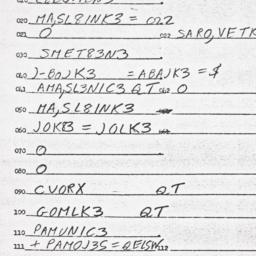 020 MA,SL8INK3 = 022
021 O 022 SARO,VETK
030 SMET83N3
040 J-BOJK3 = ABAJK3 = $
041 AMA,SL3NIC3 QT 042 O
050 MA,SL8INK3
060 JOKB3 = JOLK3
070 O
080 O
090 CVORX QT
100 GOMLK3 QT
110 PAMUNIC3
111 + PAMOJ3S = QELSW 112